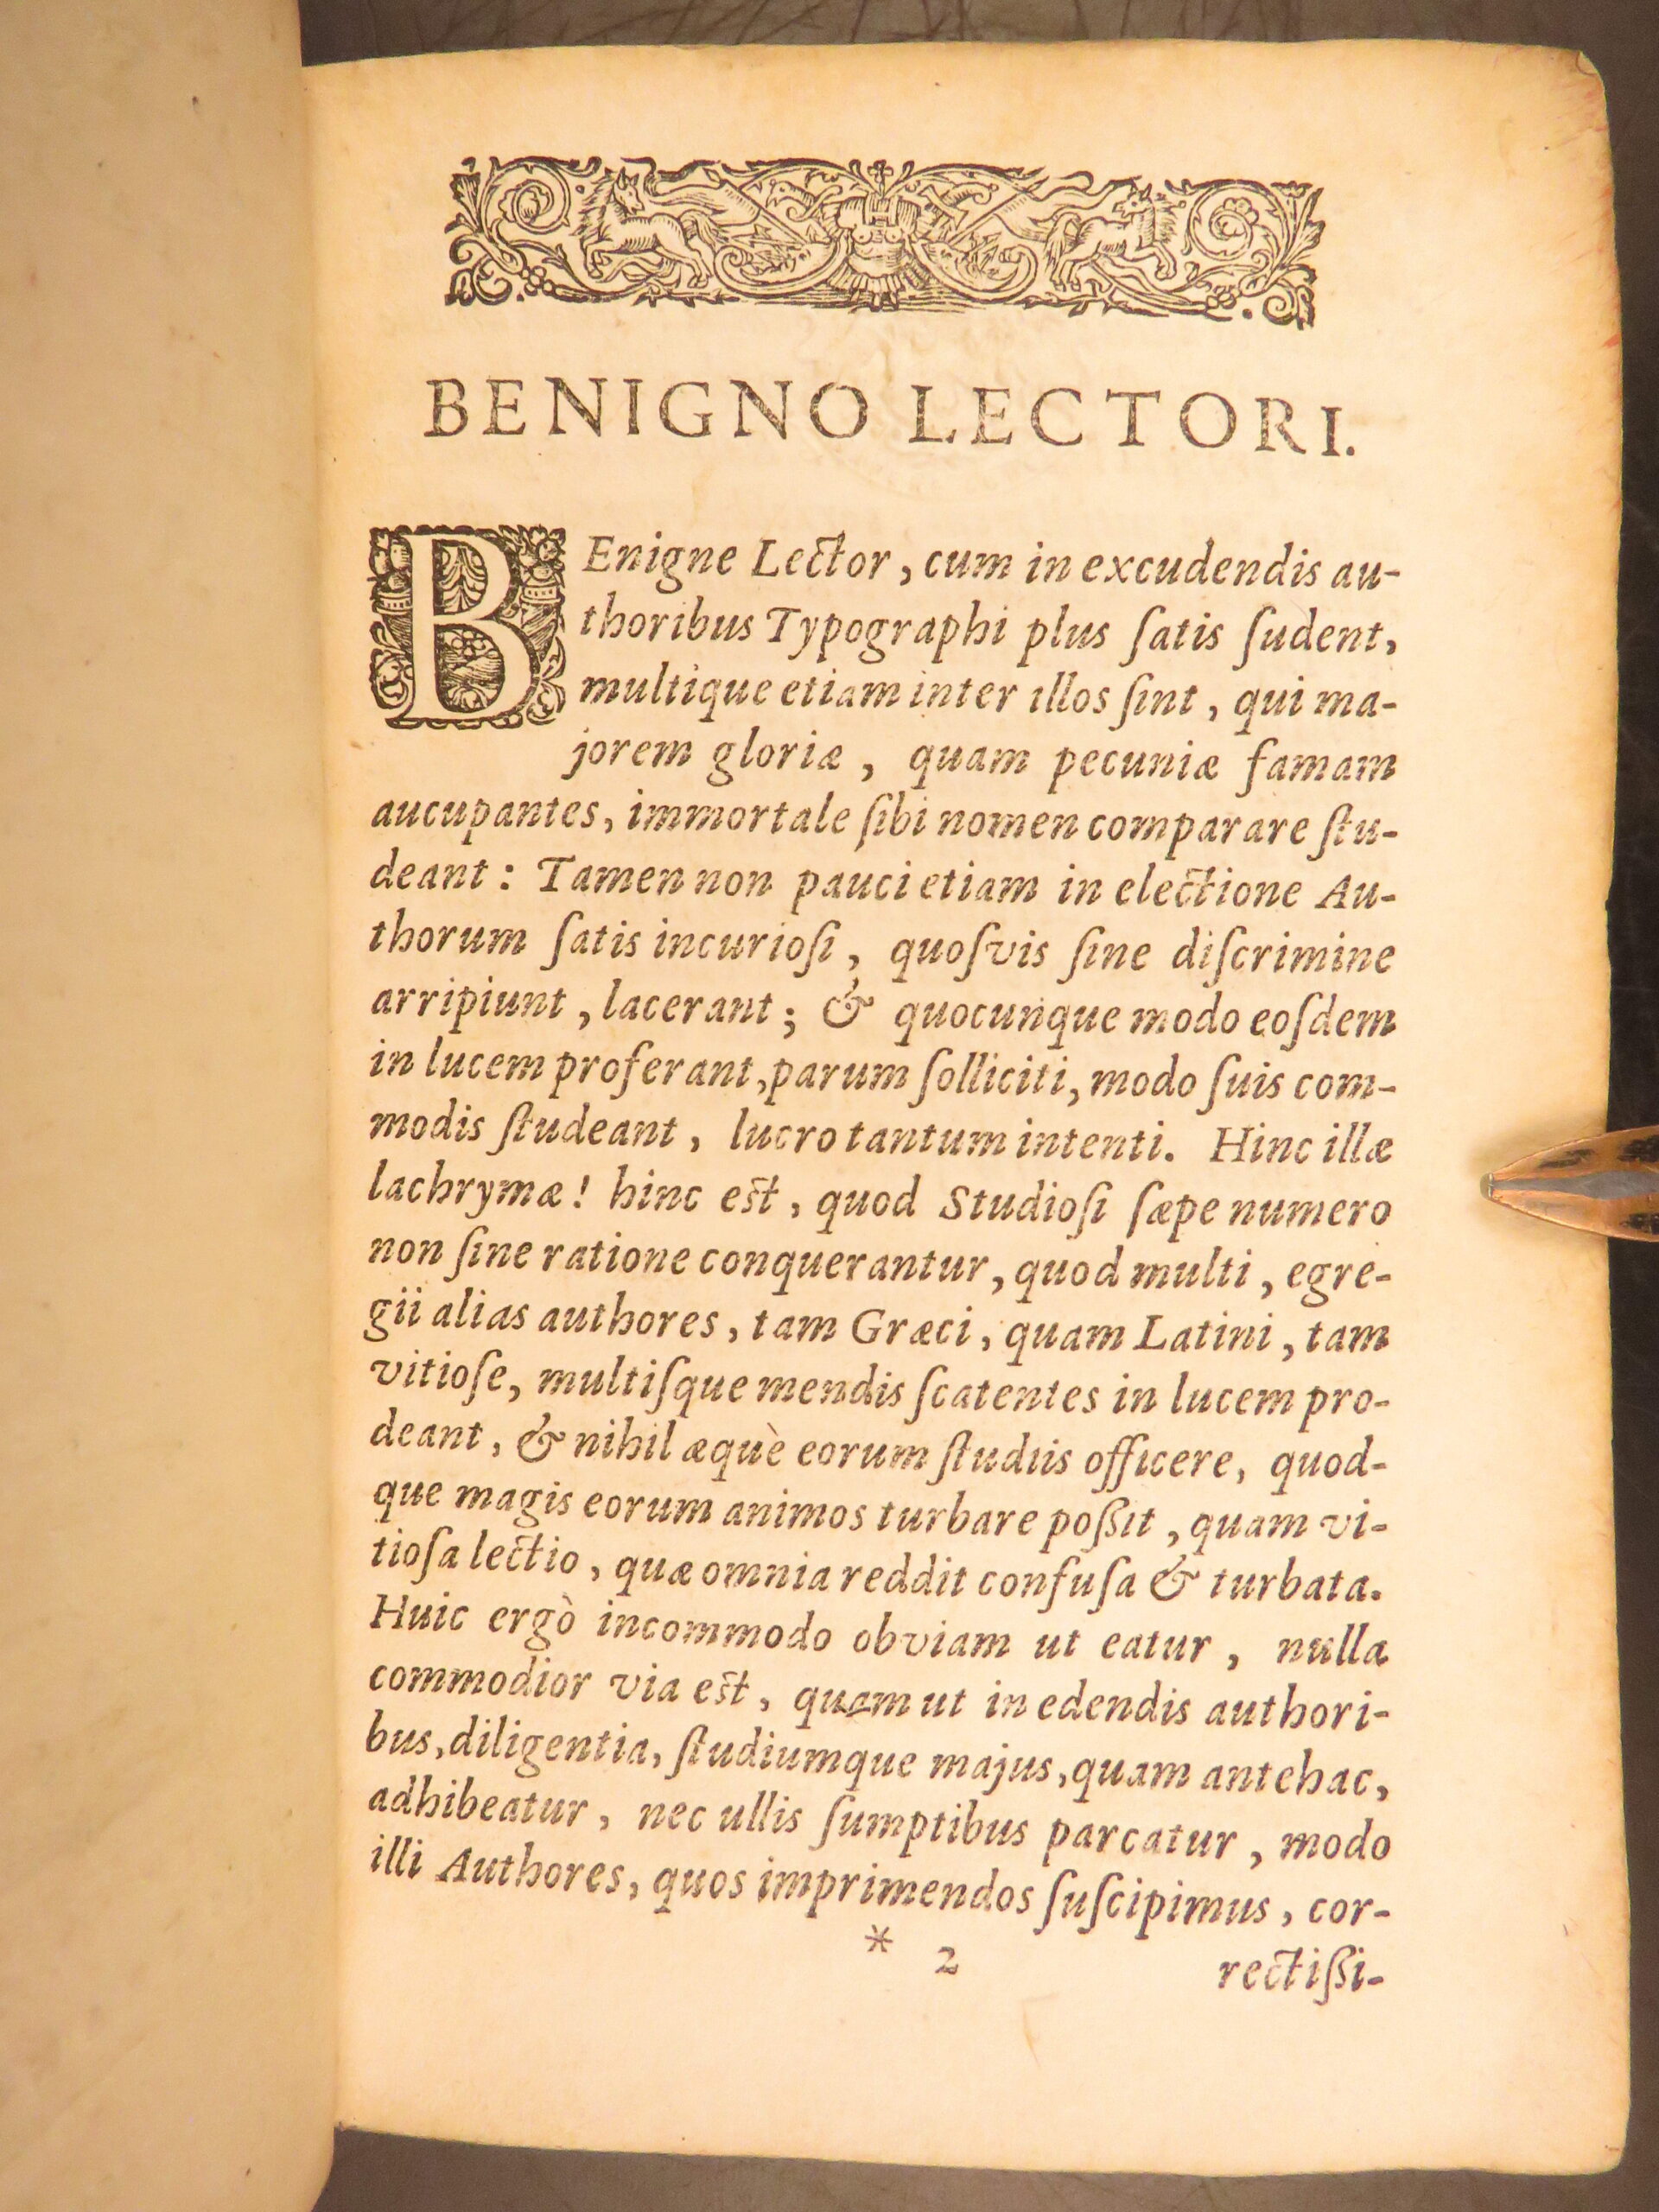 BENIGNO LECTORI.
BEnigne Lector, cum in excudendis au-
thoribus Typographi plus ſatis ſudent,
multique etiam inter illos ſint, qui ma-
jorem gloriæ, quam pecuniæ famam
aucupantes, immortale ſibi nomen comparare ſtu-
deant: Tamen non pauci etiam in electione Au-
thorum ſatis incurioſi, quoſvis ſine diſcrimine
arripiunt, lacerant; & quocunque modo eoſdem
in lucem proferant, parum ſolliciti, modo ſuis com-
modis ſtudeant, lucro tantum intenti. Hinc illæ
lachrymæ! hinc est, quod Studioſi ſæpe numero
non ſine ratione conquerantur, quod multi, egre-
gii alias authores, tam Græci, quam Latini, tam
vitioſe, multiſque mendis ſcatentes in lucem pro-
deant, & nihil æquè eorum ſtudiis officere, quod-
que magis eorum animos turbare poſſit, quam vi-
tioſa lectio, quæ omnia reddit confuſa & turbata.
Huic ergò incommodo obviam ut eatur, nulla
commodior via est, quam ut in edendis authori-
bus, diligentia, ſtudiumque majus, quam antehac,
adhibeatur, nec ullis ſumptibus parcatur, modo
illi Authores, quos imprimendos ſuſcipimus, cor-
* 2 rectiſſi-